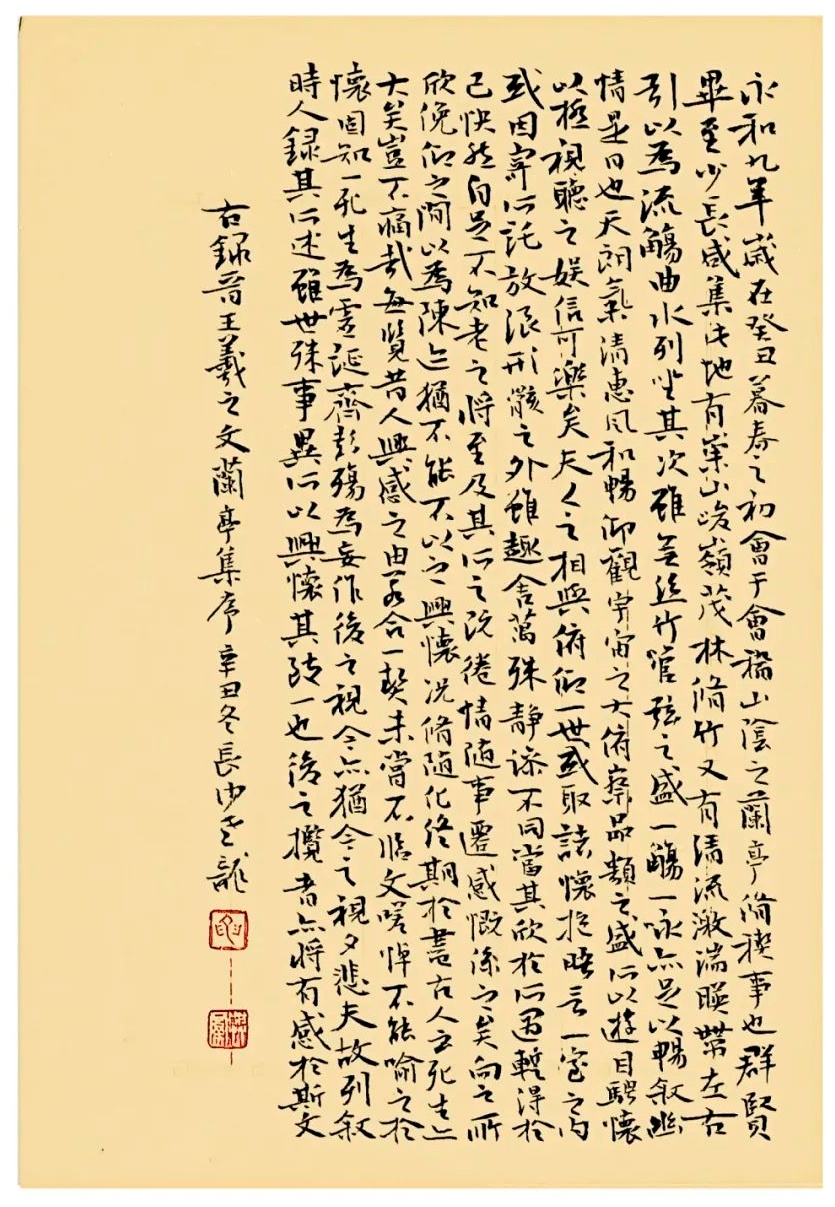 永和九年歲在癸丑暮春之初會于會稽山陰之蘭亭脩稧事也群賢
畢至少長咸集此地有崇山峻嶺茂林脩竹又有清流激湍暎帶左右
引以為流觴曲水列坐其次雖無絲竹管弦之盛一觴一詠亦足以暢敘幽
情是日也天朗氣清惠風和暢仰觀宇宙之大俯察品類之盛所以遊目騁懷
以極視聽之娛信可樂矣夫人之相與俯仰一世或取諸懷抱晤言一室之內
或因寄所託放浪形骸之外雖趣舍萬殊靜躁不同當其欣於所遇暫得於
己快然自足不知老之將至及其所之既倦情隨事遷感慨係之矣向之所
欣俛仰之間以為陳迹猶不能不以之興懷況脩隨化終期於盡古人云死生亦
大矣豈不痛哉每覽昔人興感之由若合一契未嘗不臨文嗟悼不能喻之於
懷固知一死生為虛誕齊彭殤為妄作後之視今亦猶今之視夕悲夫故列敘
時人錄其所述雖世殊事異所以興懷其致一也後之攬者亦將有感於斯文
右錄晉王羲之文蘭亭集序辛丑冬長沙老龍